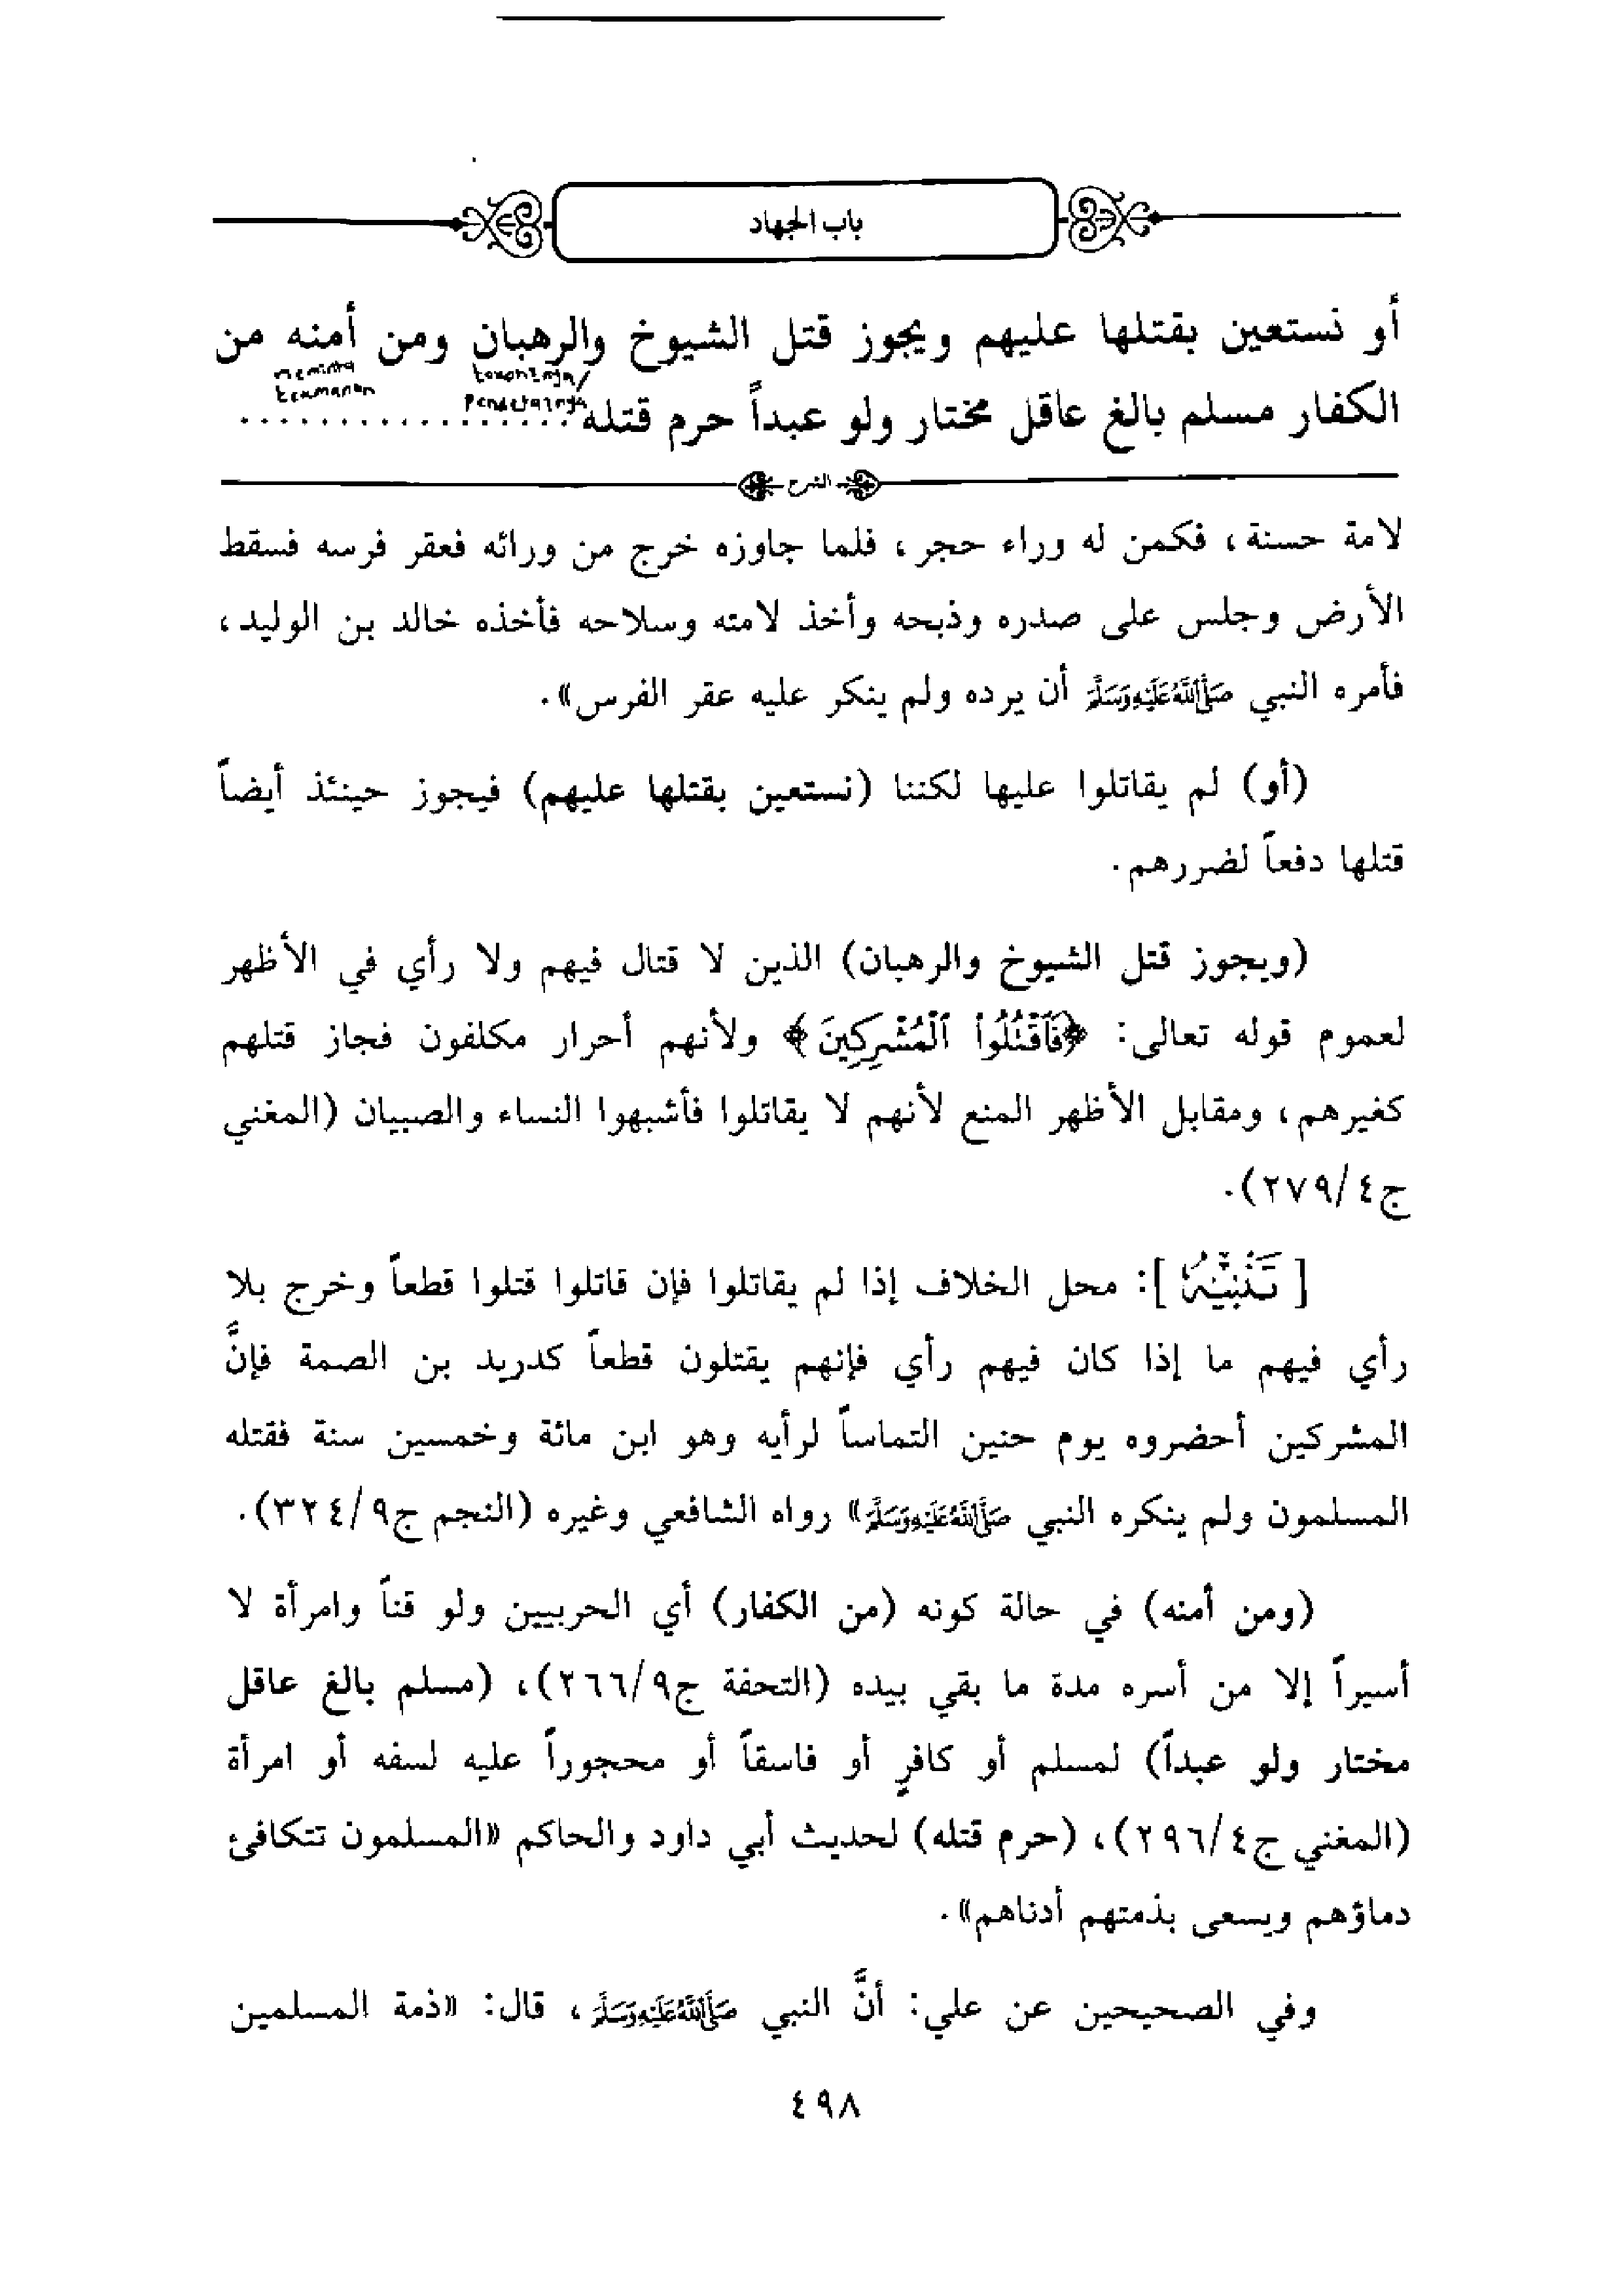 باب الجهاد
أو نستعين بقتلها عليهم ويجوز قتل الشيوخ والرهبان ومن أمنه من
meminta
keamanan
tokohnya/
pendetanya
الكفار مسلم بالغ عاقل مختار ولو عبداً حرم قتله ................
الشرح
لامة حسنة، فكمن له وراء حجر، فلما جاوزه خرج من ورائه فعقر فرسه فسقط
الأرض وجلس على صدره وذبحه وأخذ لامته وسلاحه فأخذه خالد بن الوليد،
فأمره النبي صَلَّى اللَّهُ عَلَيْهِ وَسَلَّمَ أن يرده ولم ينكر عليه عقر الفرس».
(أو) لم يقاتلوا عليها لكننا (نستعين بقتلها عليهم) فيجوز حينئذ أيضاً
قتلها دفعاً لضررهم.
(ويجوز قتل الشيوخ والرهبان) الذين لا قتال فيهم ولا رأي في الأظهر
لعموم قوله تعالى: ﴿فَاقْتُلُوا الْمُشْرِكِينَ﴾ ولأنهم أحرار مكلفون فجاز قتلهم
كغيرهم، ومقابل الأظهر المنع لأنهم لا يقاتلوا فأشبهوا النساء والصبيان (المغني
ج٤/٢٧٩).
[تَنْبِيْهٌ]: محل الخلاف إذا لم يقاتلوا فإن قاتلوا قتلوا قطعاً وخرج بلا
رأي فيهم ما إذا كان فيهم رأي فإنهم يقتلون قطعاً كدريد بن الصمة فإنَّ
المشركين أحضروه يوم حنين التماساً لرأيه وهو ابن مائة وخمسين سنة فقتله
المسلمون ولم ينكره النبي صَلَّى اللَّهُ عَلَيْهِ وَسَلَّمَ» رواه الشافعي وغيره (النجم ج٩/٣٢٤).
(ومن أمنه) في حالة كونه (من الكفار) أي الحربيين ولو قناً وامرأة لا
أسيراً إلا من أسره مدة ما بقي بيده (التحفة ج٩/٢٦٦)، (مسلم بالغ عاقل
مختار ولو عبداً) لمسلم أو كافرٍ أو فاسقاً أو محجوراً عليه لسفه أو امرأة
(المغني ج٤/٢٩٦)، (حرم قتله) لحديث أبي داود والحاكم «المسلمون تتكافئ
دماؤهم ويسعى بذمتهم أدناهم».
وفي الصحيحين عن علي: أنَّ النبي صَلَّى اللَّهُ عَلَيْهِ وَسَلَّمَ، قال: «ذمة المسلمين
٤٩٨